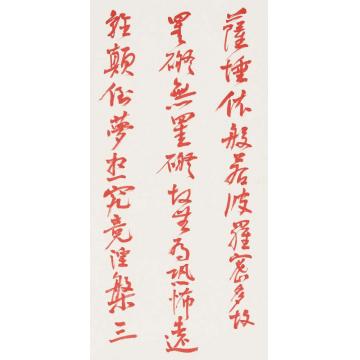 薩埵依般若波羅蜜多故
罣礙無罣礙故無有恐怖遠
離顛倒夢想究竟涅槃三